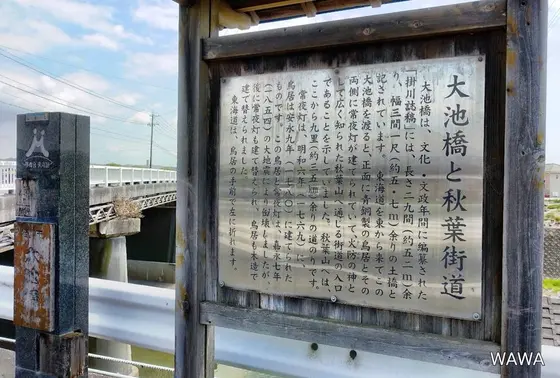 大池橋と秋葉街道
大池橋は、文化・文政年間に編纂された
「掛川誌稿」には、長さ二九間（約五二m）余
り、幅三間一尺（約五・七m）余りの土橋と
記されています。東海道を東から来てこの
大池橋を渡ると、正面に青銅製の鳥居とその
両側に常夜灯が建てられていて火防の神と
して広く知られた秋葉山へ通じる街道の入口
であることを示していました。秋葉山へは、
ここから九里（約三五㎞）余りの道のりです。
常夜灯は、明和六年（一七六九）に、
鳥居は安永九年（一七八〇）に建てられた
ものです。この鳥居と常夜灯は、嘉永七年
（一八五四）の大地震により御倒壊しましたが、
後に常夜灯も建て替えられ、鳥居も木造で
建て替えられました。
東海道は、鳥居の土前で左に折れます。
大池橋
WAWA